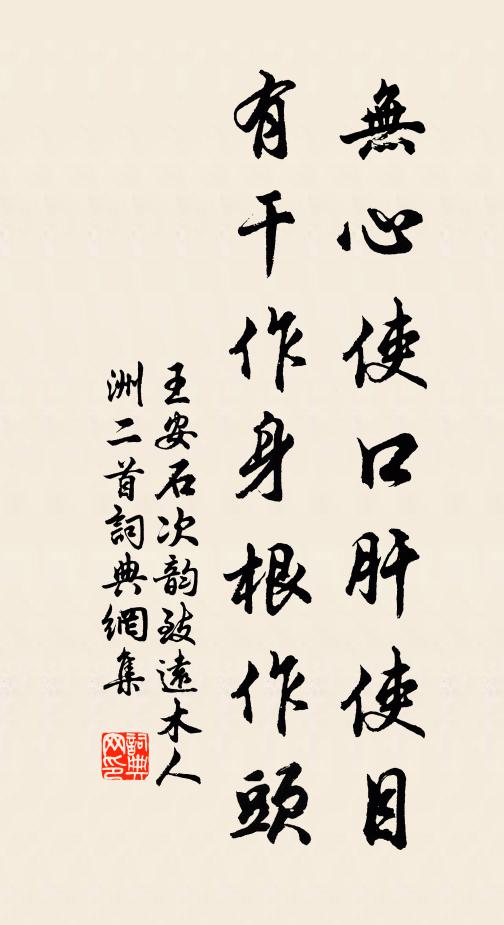 無心使口肝使目
有干作身根作頭
王安石次韵致遠木人
洲二首詞典網集
詞典
网印